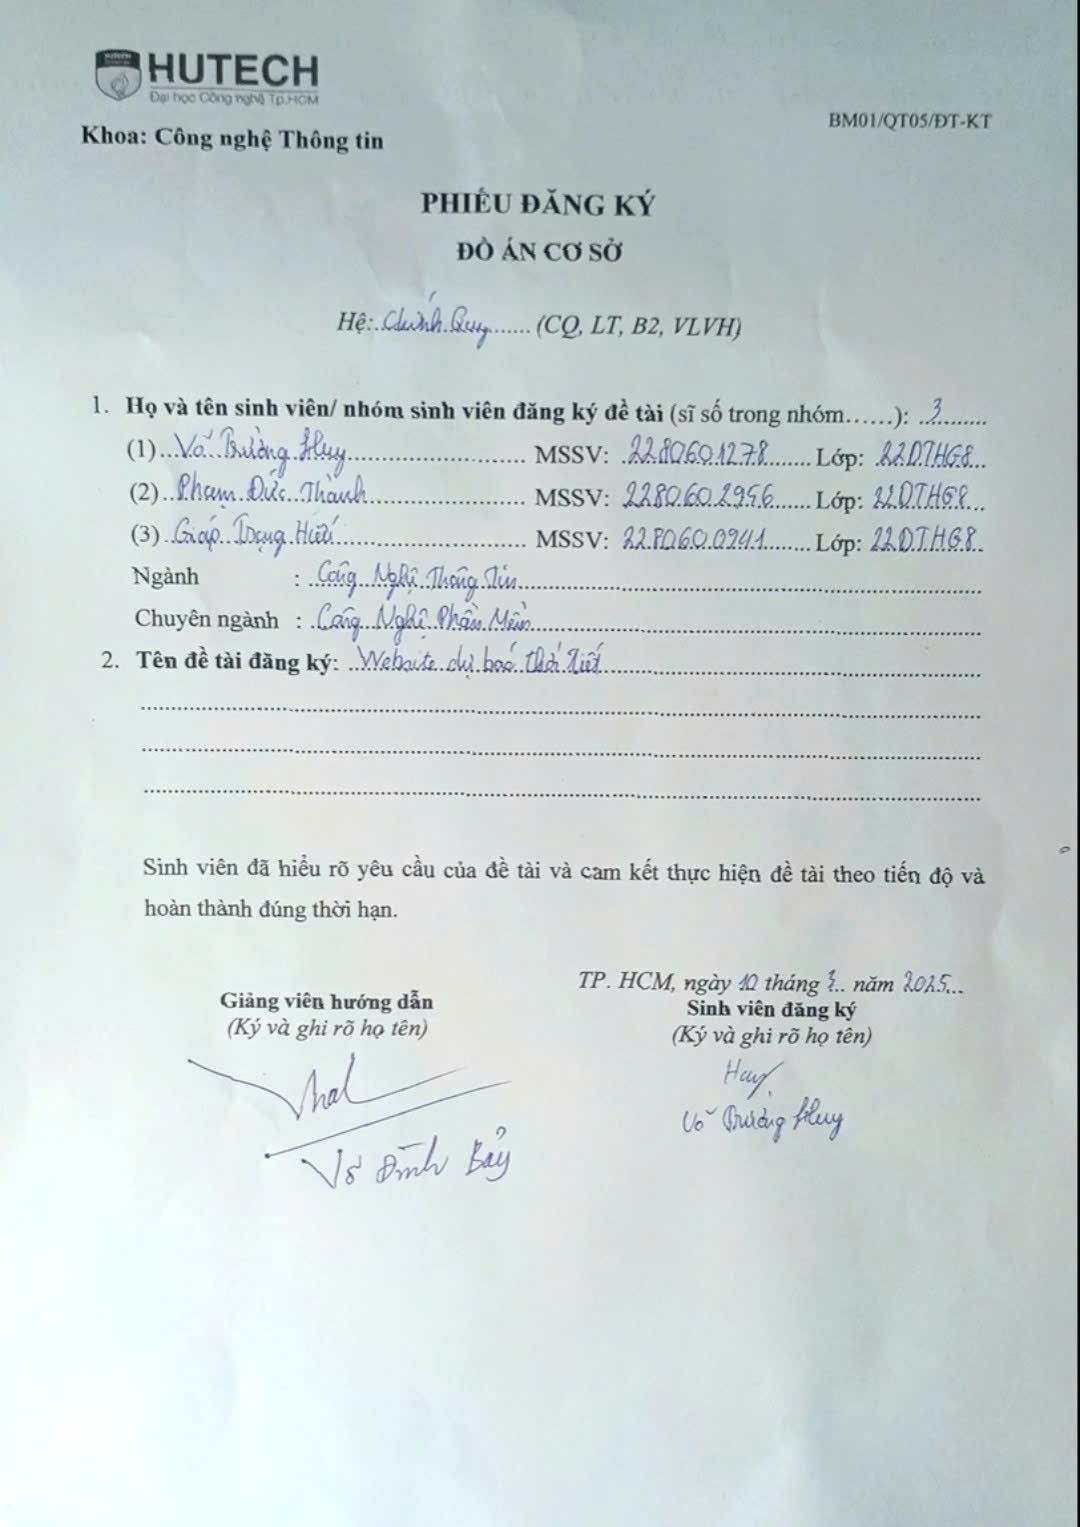 HUTECH
Đại học Công nghệ Tp.HCM
Khoa: Công nghệ Thông tin
BM01/QT05/ĐT-KT
PHIẾU ĐĂNG KÝ
ĐỒ ÁN CƠ SỞ
Hệ: Chính Quy (CQ, LT, B2, VLVH)
1. Họ và tên sinh viên/ nhóm sinh viên đăng ký đề tài (sĩ số trong nhóm......): 3
(1) Võ Trường Huy MSSV: 2280601278 Lớp: 22DTHG8
(2) Phạm Đức Thành MSSV: 2280602956 Lớp: 22DTHG8
(3) Giáp Trọng MSSV: 2280600941 Lớp: 22DTHG8
Ngành : Công Nghệ Thông Tin
Chuyên ngành : Công Nghệ Phần Mềm
2. Tên đề tài đăng ký: Website dự báo thời tiết
Sinh viên đã hiểu rõ yêu cầu của đề tài và cam kết thực hiện đề tài theo tiến độ và
hoàn thành đúng thời hạn.
TP. HCM, ngày 10 tháng năm 2025
Giảng viên hướng dẫn
Sinh viên đăng ký
(Ký và ghi rõ họ tên)
(Ký và ghi rõ họ tên)
Huy
Võ Trường Huy
Võ Đình Bảy